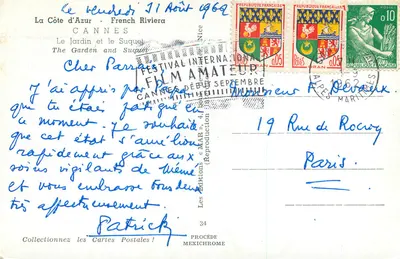 Le vendredi 31 Août 1962
La Côte d'Azur - French Riviera
CANNES
Le Jardin et le Suquet
The Garden and Suquet
Cher Parrain
J'ai appris par
que tu étais fatigué en ce
moment. Je souhaite
que cet état s'améliore
rapidement grâce aux
soins vigilants de Mémé
et vous embrasse tous deux
très affectueusement.
Patrick
Collectionnez les Cartes Postales !
FESTIVAL INTERNATIONAL
FILM AMATEUR
CANNES DÉBUT SEPTEMBRE
Les Éditions « MAR »
Nice
Reproduction
34
PROCÉDÉ
MEXICHROME
0,05
0,05
0,10
ALPES
MARITIMES
Monsieur A. Devaux
19 Rue de Rocroy
Paris